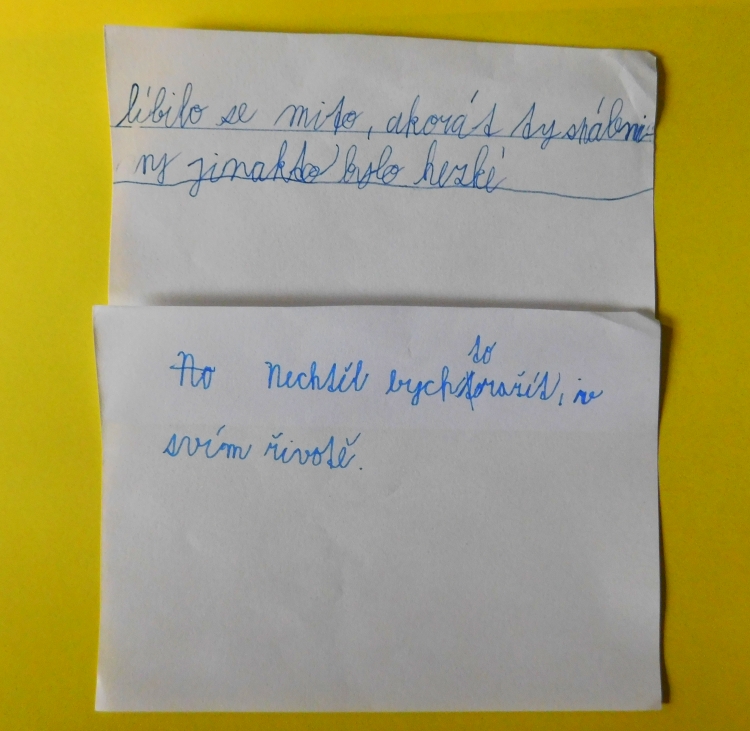 líbilo se mito, akorát ty spáleni-
ny jinak to bylo hezké
No Nechtěl bych to zažít, v
svím životě.